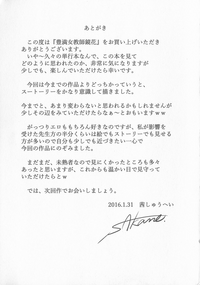 あとがき
この度は『豊満女教師鏡花』をお買い上げいただき
ありがとうございます。
いや〜久々の単行本なんで、この本を見て
どのように思われたのか、非常に気になりますが
少しでも、楽しんでいただけたら幸いです。
今回は今までの作品よりどっちかっていうと、
ストーリーをかなり意識して描きました。
今までと、あまり変わらないと思われるかもしれませんが
少しその辺をみていただけたらな〜とおもいますｗｗ
がっつりエロももちろん好きなのですが、私が影響を
受けた先生方の半分くらいは絵でもストーリーでも見せる
方が多いので自分も少しでも近づきたい一心で
今回の作品にのぞみました。
まだまだ、未熟者なので見にくかったところも多々
あったと思いますが、これからも温かい目で見守って
いただけたらとｗ
では、次回作でお会いしましょう。
2016.1.31 茜しゅうへい